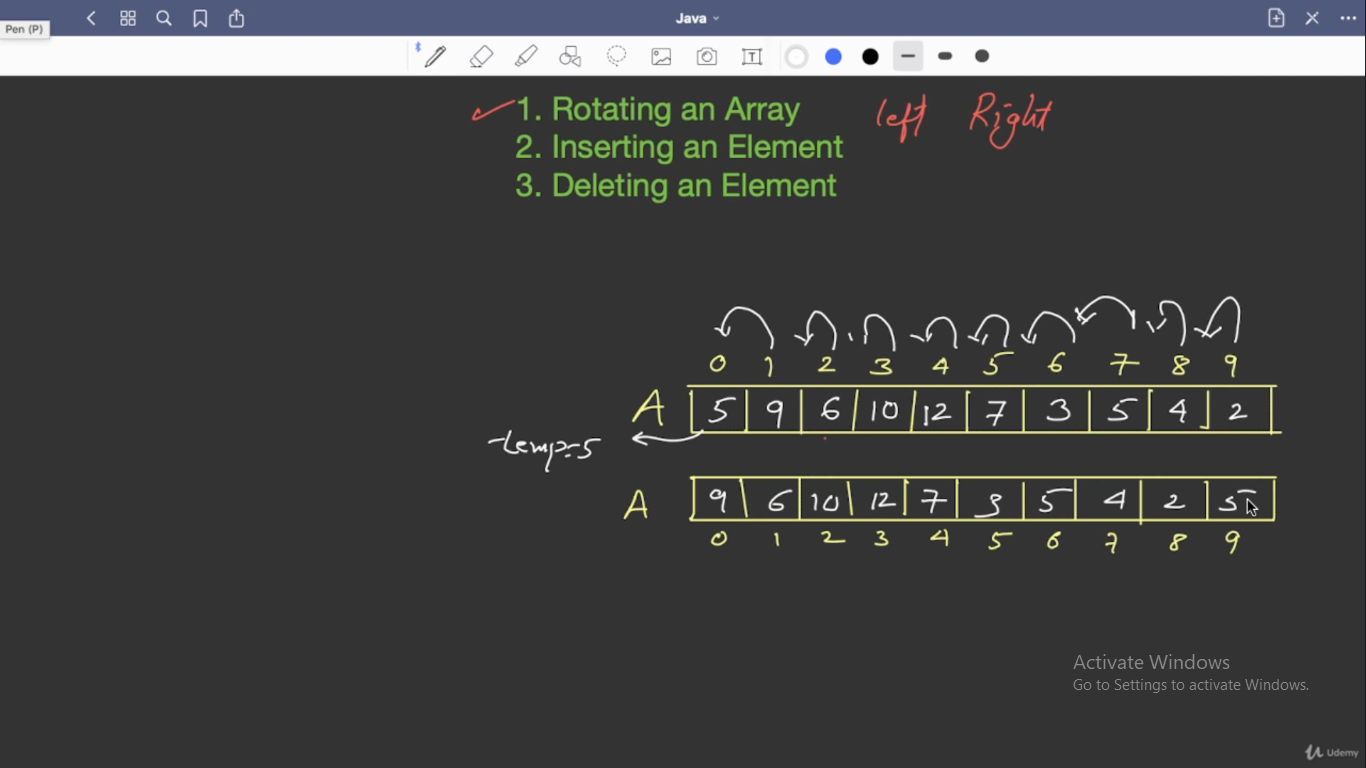 Java
Pen (P)
T
1. Rotating an Array left Right
2. Inserting an Element
3. Deleting an Element
0 1 2 3 4 5 6 7 8 9
A 5 9 6 10 12 7 3 5 4 2
temp=5
A 9 6 10 12 7 3 5 4 2 5
0 1 2 3 4 5 6 7 8 9
Activate Windows
Go to Settings to activate Windows.
Udemy